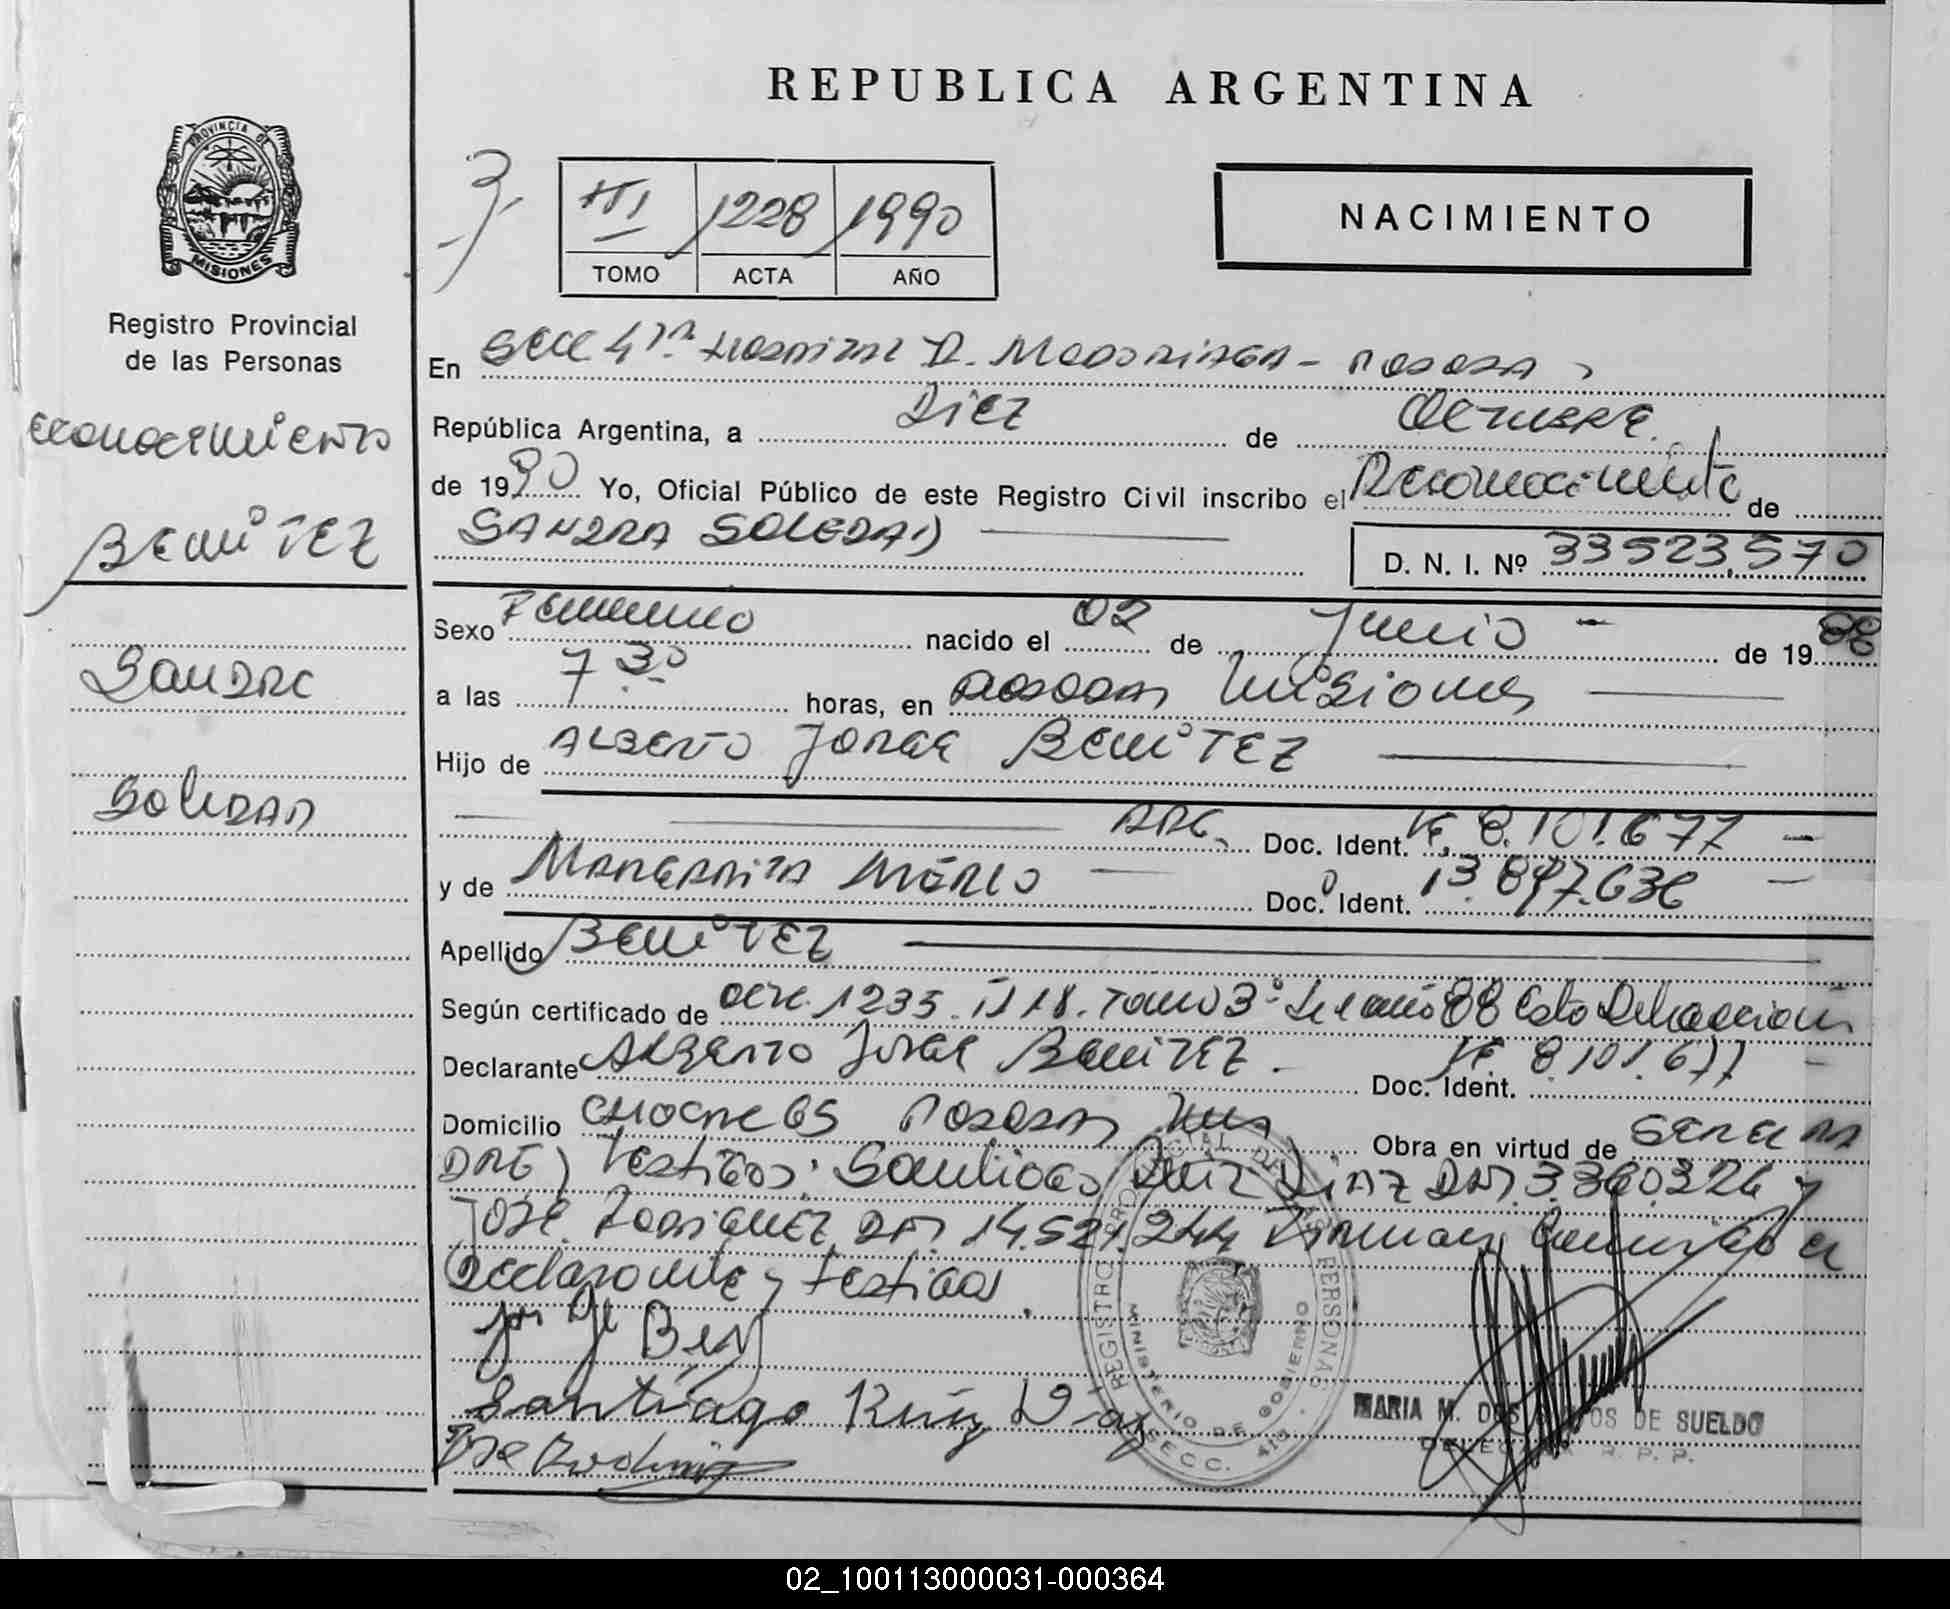 REPUBLICA ARGENTINA
PROVINCIA DE
MISIONES
Registro Provincial
de las Personas
econocimiento
BENITEZ
Sandra
Soledad
3
III 1228 1990
TOMO ACTA AÑO
NACIMIENTO
En Secc 4ta Hospital D. Madariaga - Posadas
República Argentina, a Diez de Octubre
de 1990 Yo, Oficial Público de este Registro Civil inscribo el Reconocimiento de
SANDRA SOLEDAD
D. N. I. Nº 33523.570
Sexo Femenino nacido el 02 de Junio - de 1988
a las 7 30 horas, en Posadas Misiones
Hijo de ALBERTO JORGE BENITEZ
ARG. Doc. Ident. 8.101.677 -
y de MARGARITA Doc. Ident. 13.897.636 -
Apellido BENITEZ
Según certificado de acta 1235 Tomo 3º del año 88 esta Delegación
Declarante Alberto Jorge Benitez - Doc. Ident. 8.101.677 -
Domicilio Chacra 65 Posadas Mnes Obra en virtud de ser el pa
dre) testigos: Santiago Ruiz Diaz DNI 3.360.326 y
José Rodriguez DNI 14.521.244 Firman Conmigo el
declarante y testigos
Santiago Ruiz Diaz
José Rodriguez
REGISTRO PROVINCIAL DE LAS PERSONAS
MINISTERIO DE GOBIERNO
SECC. 4ta.
MARIA M. DOS SANTOS DE SUELDO
DELEGADA R. P. P.
02_100113000031-000364